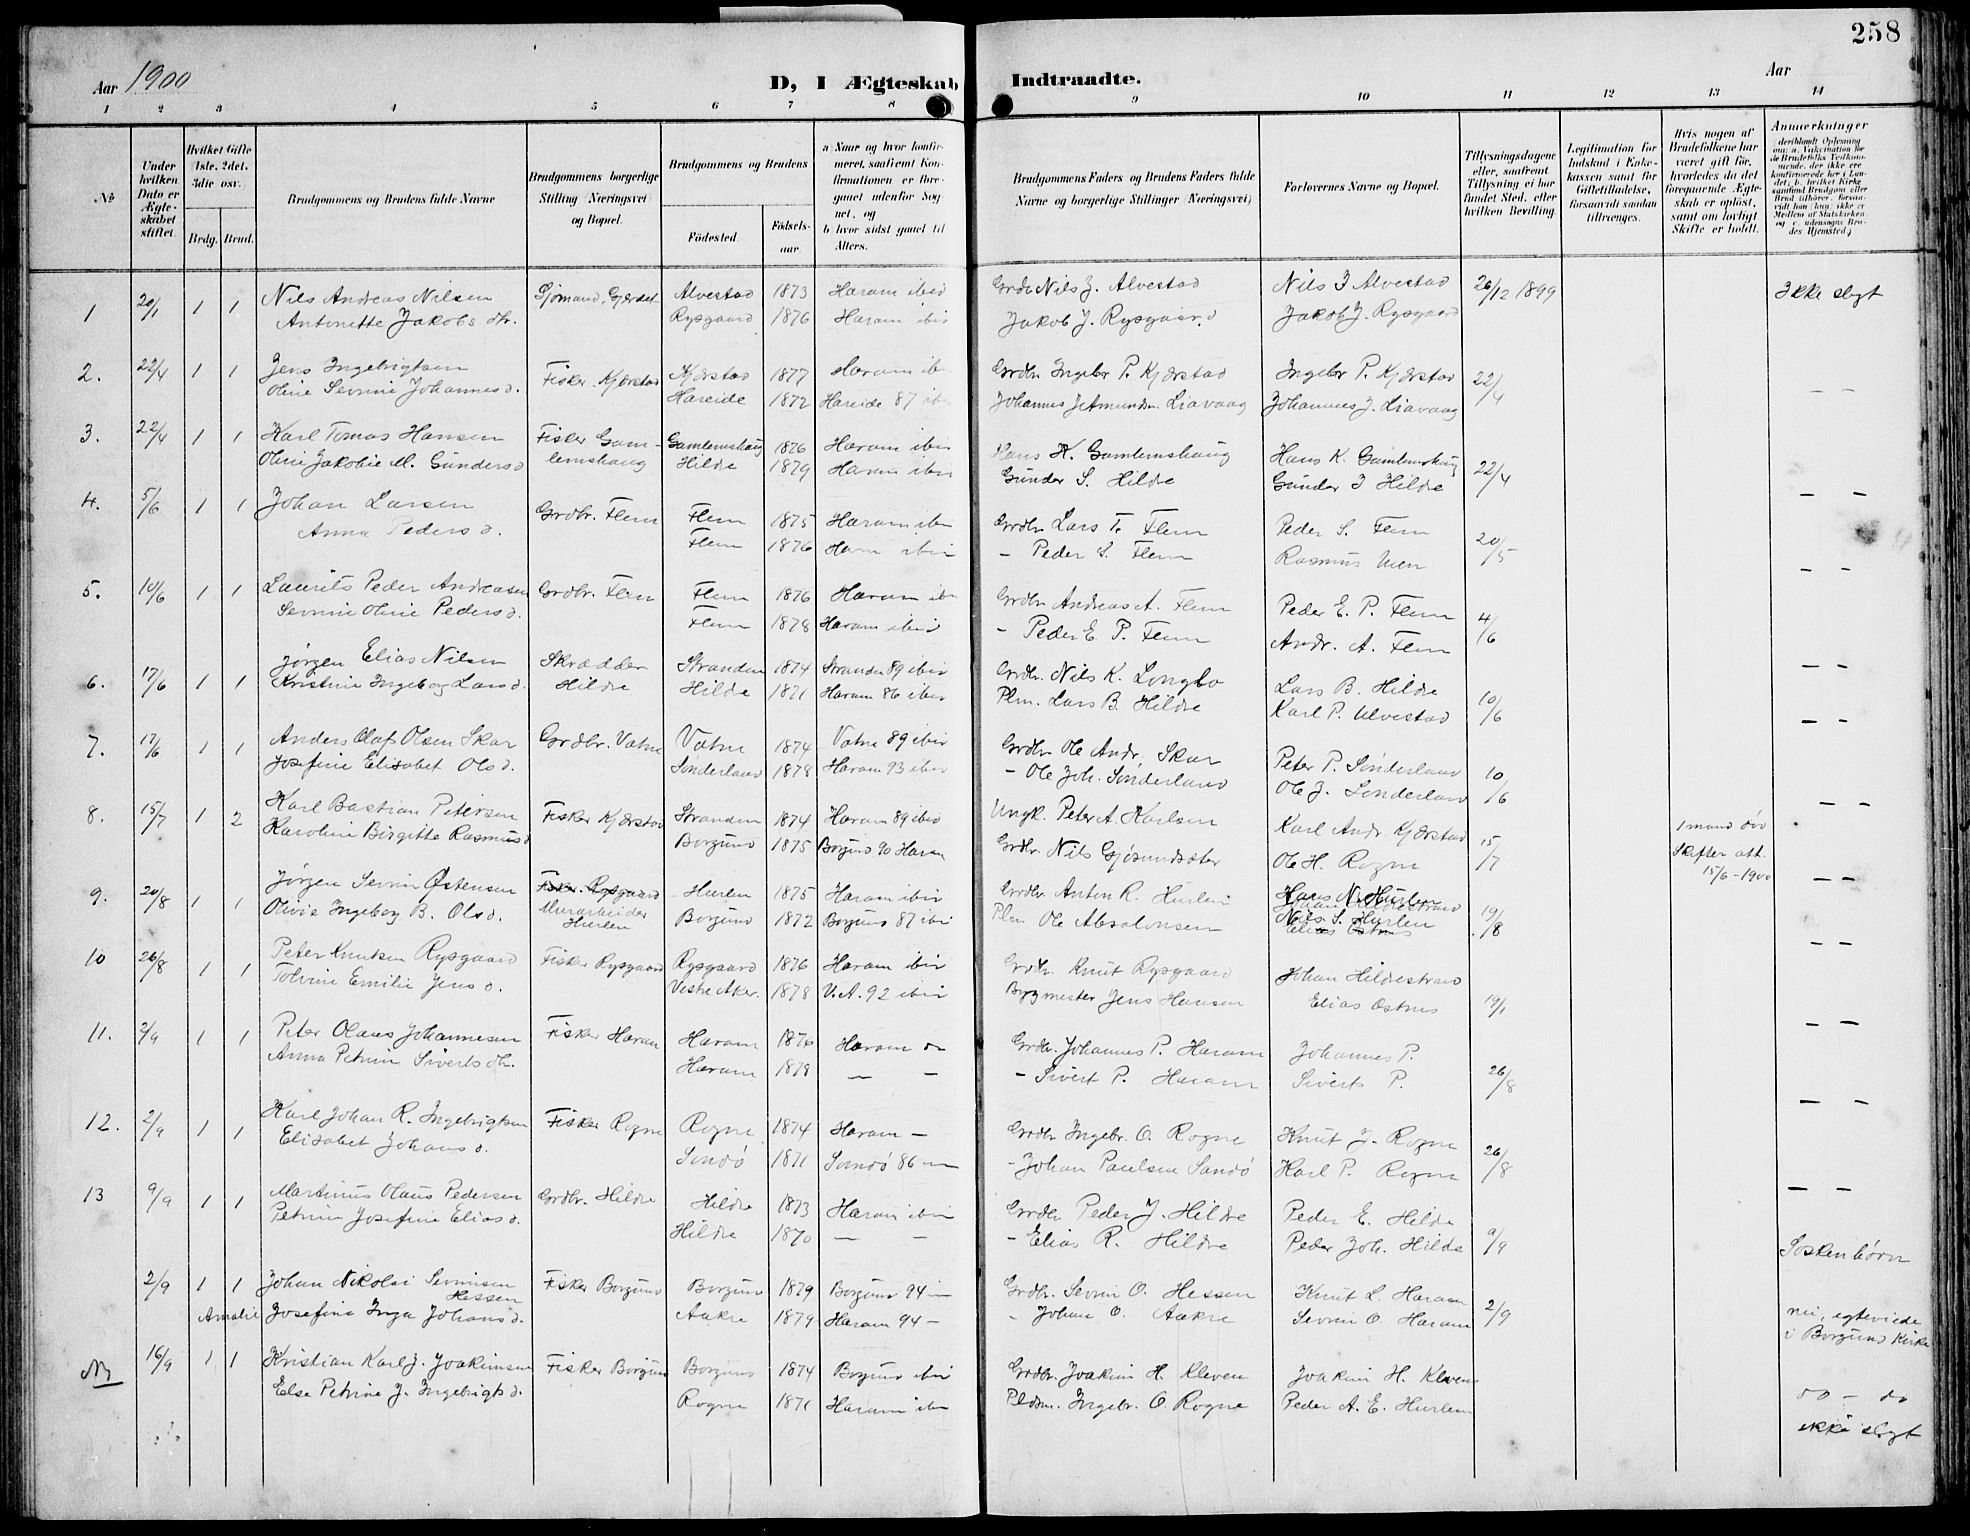 258
Aar 1900
D, I Ægteskab Indtraadte.
Aar
1 2 3 4 5 6 7 8 9 10 11 12 13 14
No
Under hvilken Dato er Ægteskabet stiftet.
Hvilket Gifte (1ste, 2det, 3die osv.
Brdg. Brud.
Brudgommens og Brudens fulde Navne
Brudgommens borgerlige Stilling (Næringsvei) og Bopæl.
Brudgommens og Brudens
Fødested. Fødselsaar.
a) Naar og hvor konfirmeret, saafremt Konfirmationen er foregaaet udenfor Sognet, og
b) hvor sidst gaaet til Alters.
Brudgommens Faders og Brudens Faders fulde Navne og borgerlige Stillinger (Næringsvei)
Forlovernes Navne og Bopæl.
Tillysningsdagene eller, saafremt Tillysning ei har fundet Sted, efter hvilken Bevilling.
Legitimation for Indskud i Enkekassen samt for Giftetilladelse, forsaavidt saadan tiltrænges.
Hvis nogen af Brudefolkene har været gift før, hvorledes da det foregaaende Ægteskab er opløst, samt om lovligt Skifte er holdt.
Anmærkninger
1 20/1 1 1 Nils Andreas Nilsen Sjømand, Gjerdet Alvestad 1873 Haram ibid Grdbr Nils J. Alvestad Nils J Alvestad 26/12 1899 Ikke slegt
Antonette Jakobs dtr. Rysgaard 1876 Haram ibid Jakob J. Rysgaard Jakob J. Rysgaard
2. 22/4 1 1 Jens Ingebrigtsen Fisker Kjerstad Kjerstad 1877 Haram ibid Grdbr Ingebr P. Kjerstad Ingebr P. Kjerstad 22/4 — —
Oline Sevrine Johannesd. Hareide 1872 Hareide 87 ibid Johannes Jetmundsen Liavaag Johannes J. Liavaag
3. 22/4 1 1 Karl Tomas Hansen Fisker Gamlemshaug Gamlemshaug 1876 Haram ibid Hans K. Gamlemshaug Hans K. Gamlemshaug 22/4 — —
Oline Jakobie M. Gundersd Hilde 1879 Haram ibid Gunder S. Hilde Gunder J Hilde
4. 5/6 1 1 Johan Larsen Grdbr. Flem Flem 1875 Haram ibid Grdbr Lars T. Flem Peder S. Flem 20/5 — —
Anna Peders d. Flem 1876 Haram ibid — Peder S. Flem Rasmus Uren
5. 10/6 1 1 Laurits Peder Andreasen Grdbr. Flem Flem 1876 Haram ibid Grdbr Andreas A. Flem Peder E. P. Flem 4/6 — —
Sevrine Oline Peders d. Flem 1878 Haram ibid — Peder E. P. Flem Andr. A. Flem
6. 17/6 1 1 Jørgen Elias Nilsen Skrædder Stranden 1874 Stranden 89 ibid Grdbr. Nils K. Longbo Lars B. Hilde 10/6 — —
Kristine Ingeborg Lars d. Hilde Hilde 1871 Haram 86 ibid Plm. Lars B. Hildre Karl P. Ulvestad
7. 17/6 1 1 Anders Olaf Olsen Skar Grdbr. Vatne Vatne 1874 Vatne 89 ibid Grdbr Ole Andr. Skar Peter P. Sønderland 10/6
Josefine Elisabet Ols d. Sønderland 1878 Haram 93 ibid — Ole Joh. Sønderland Ole J. Sønderland
8. 15/7 1 2 Karl Bastian Petersen Fisker Kjerstad Stranden 1874 Haram 89 ibid Ungk. Peter A. Karlsen Karl Andr. Kjerstad 15/7 1 mand død — —
Karoline Birgitte Rasmusd Borgund 1875 Borgund 90 Haram Grdbr. Nils Gjøsundsæter Ole H. Rogne Skifter att. 15/6-1900
9. 20/8 1 1 Jørgen Sevrin Østensen Fisker Rysgaard Hurlen 1875 Haram ibid Grdbr Anton R. Hurlen Hans N. Hurlen 19/8 — —
Olivie Ingeborg B. Ols d. Murarbeider Hurlen Borgund 1872 Borgund 87 ibid Plm Ole Absalonsen Nils S. Hurlen
10 26/8 1 1 Peter Knutsen Rysgaard Fisker Rysgaard Rysgaard 1876 Haram ibid Grdbr. Knut Rysgaard Johan Hildestrand 19/1 — —
Tolvine Emilie Jens d. Vestre Aker. 1878 V.A. 92 ibid Bygmester Jens Hansen Elias Østnes
11. 2/9 1 1 Peter Olaus Johannesen Fisker Haram Haram 1876 Haram do Grdbr. Johannes P. Haram Johannes P. 26/8 — —
Anna Petrine Siverts dtr. Haram 1878 — — — Sivert P. Haram Siverts P.
12. 2/9 1 1 Karl Johan R. Ingebrigtsen Fisker Rogne Rogne 1874 Haram — Grdbr Ingebr. O. Rogne Knut J. Rogne 26/8 — —
Elisabet Johans d. Sandø 1871 Sandø 86 — — Johan Paulsen Sandø Karl P. Rogne
13 9/9 1 1 Martinus Olaus Pedersen Grdbr. Hildre Hildre 1873 Haram ibid Grdbr Peder J. Hildre Peder E. Hilde 9/9 Søskenbørn
Petrine Josefine Elias d. Hildre 1870 — — — Elias R. Hildre Peder Joh. Hilde
2/9 1 1 Johan Nikolai Sevrinsen Hessen Fisker Borgund Borgund 1879 Borgund 94 — Grdbr. Sevrin O. Hessen Knut L. Haram 2/9 nei, egteviede
Amalie Josefine Inga Johans d. Aakre 1879 Haram 94 — Johan O. Aakre Sevrin O. Haram i Borgund Kirke
16/9 1 1 Kristian Karl J. Joakimsen Fisker Borgund Borgund 1874 Borgund ibid Grdbr. Joakim H. Kleven Joakim H. Kleven do — do
Else Petrine J. Ingebrigts d. Rogne 1871 Haram ibid Pldsm. Ingebr. O. Rogne Peder A. E. Hurlen ikke slegt